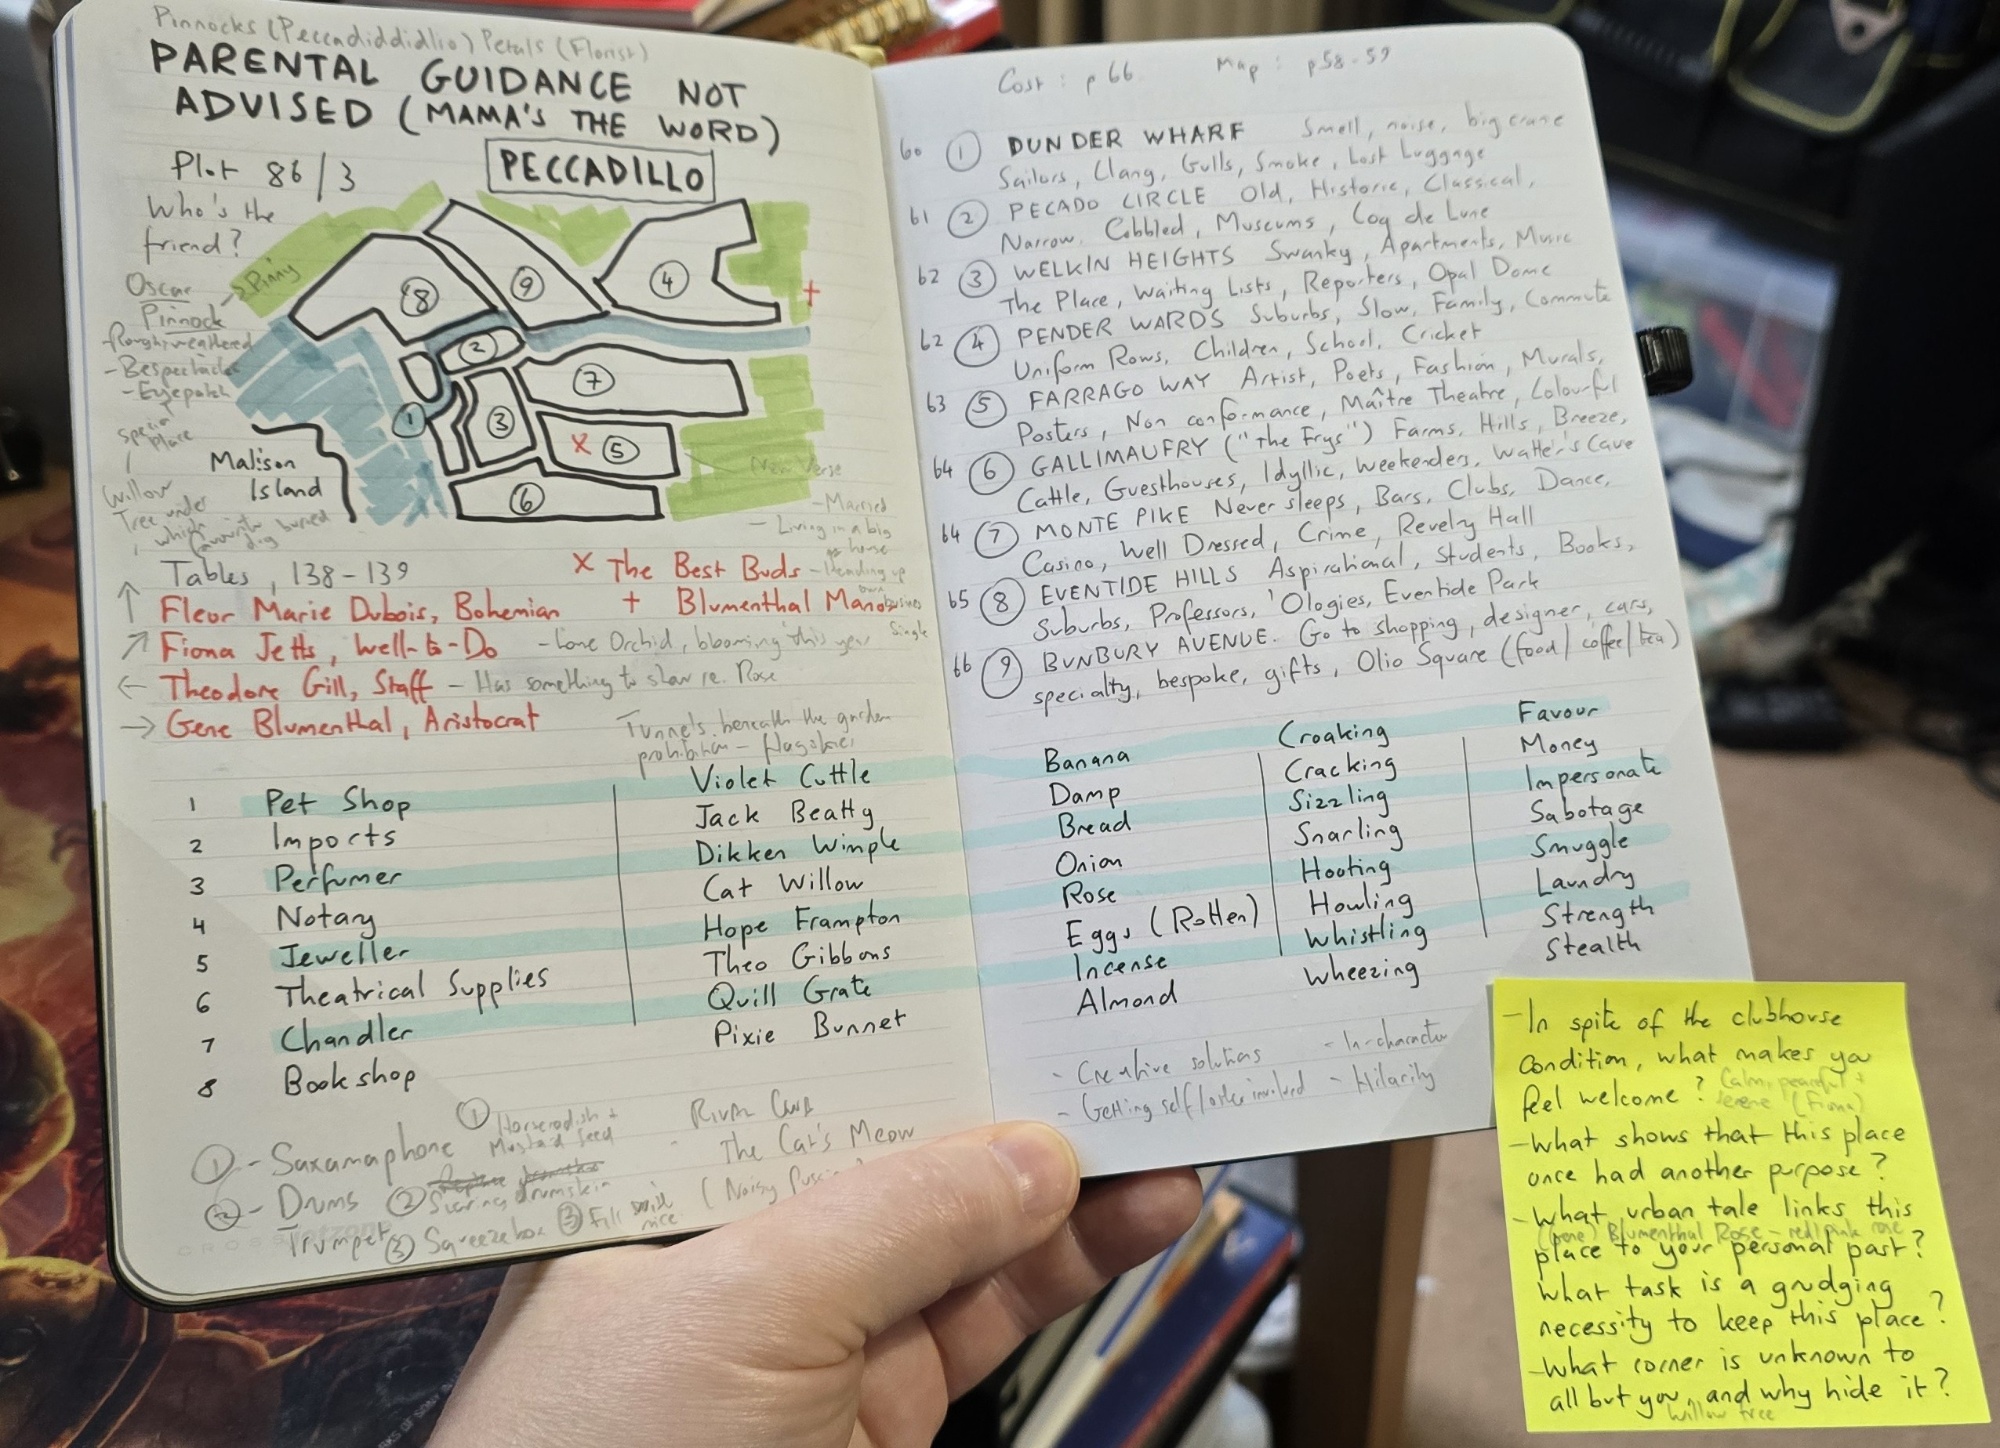 Pinnocks (Peccadiddidlio) Petals (Florist)
PARENTAL GUIDANCE NOT
ADVISED (MAMA'S THE WORD)
Plot 86/3
PECCADILLO
Who's the
friend?
Oscar
Pinnock
→ Pinny
- Roughweathered
- Bespectacled
- Eyepatch
special
Place
Willow
Tree under
which
favourite
dig buried
8
9
4
+
2
7
1
3
X 5
6
Malison
Island
New Verse
- Married
- Living in a big
house
- Heading up
own
business
Single
Tables, 138-139
X The Best Buds
+ Blumenthal Manor
↑ Fleur Marie Dubois, Bohemian
↗ Fiona Jetts, Well-to-Do - Lone Orchid, blooming this year
← Theodore Gill, Staff - Has something to show re. Rose
→ Gene Blumenthal, Aristocrat
Tunnels beneath the garden
prohibition -
1 Pet Shop Violet Cuttle
2 Imports Jack Beatty
3 Perfumer Dikken Wimple
4 Notary Cat Willow
5 Jeweller Hope Frampton
6 Theatrical Supplies Theo Gibbons
7 Chandler Quill Grate
8 Bookshop Pixie Bunnet
① - Saxamaphone
② - Drums
Trumpet
① Horseradish +
Mustard Seed
② Searing drumskin
③ Squeezebox
③ Fill with
rice
- Rival Club
The Cat's Meow
(Noisy
Cost: p66 Map: p58-59
60 ① DUNDER WHARF Smell, noise, big crane
Sailors, Clang, Gulls, Smoke, Lost Luggage
61 ② PECADO CIRCLE Old, Historic, Classical,
Narrow, Cobbled, Museums, Coq de Lune
62 ③ WELKIN HEIGHTS Swanky, Apartments, Music
The Place, Waiting Lists, Reporters, Opal Dome
62 ④ PENDER WARDS Suburbs, Slow, Family, Commute
Uniform Rows, Children, School, Cricket
63 ⑤ FARRAGO WAY Artist, Poets, Fashion, Murals,
Posters, Non conformance, Maître Theatre, Colourful
64 ⑥ GALLIMAUFRY ("The Frys") Farms, Hills, Breeze,
Cattle, Guesthouses, Idyllic, Weekenders, Watter's Cave
64 ⑦ MONTE PIKE Never sleeps, Bars, Clubs, Dance,
Casino, Well Dressed, Crime, Revelry Hall
65 ⑧ EVENTIDE HILLS Aspirational, Students, Books,
Suburbs, Professors, 'Ologies, Eventide Park
66 ⑨ BUNBURY AVENUE. Go to shopping, designer, cars,
specialty, bespoke, gifts, Olio Square (food/coffee/tea)
Banana Croaking Favour
Damp Cracking Money
Bread Sizzling Impersonate
Onion Snarling Sabotage
Rose Hooting Smuggle
Eggs (Rotten) Howling Laundry
Incense Whistling Strength
Almond Wheezing Stealth
- Creative solutions - In-character
- Getting self/other involved - Hilarity
- In spite of the clubhouse
condition, what makes you
feel welcome? Calm, peaceful +
serene (Fiona)
- What shows that this place
once had another purpose?
- What urban tale links this
(Gene) Blumenthal Rose - red/pink rose
place to your personal past?
What task is a grudging
necessity to keep this place?
- What corner is unknown to
all but you, and why hide it?
Willow tree